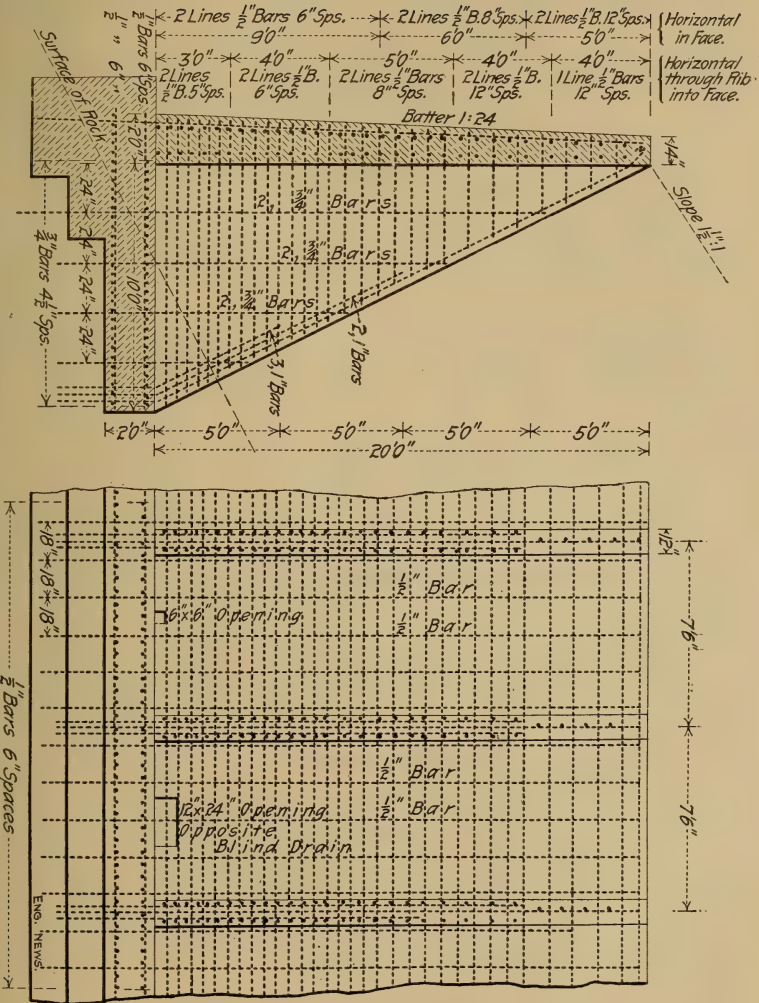 2 Lines ½" Bars 6" Sps. 2 Lines ½" B. 8" Sps. 2 Lines ½" B. 12" Sps.
9'0" 6'0" 5'0"
Horizontal
in Face.
3'0" 4'0" 5'0" 4'0" 4'0"
2 Lines
½" B. 5" Sps.
2 Lines ½" B.
6" Sps.
2 Lines ½" Bars
8" Sps.
2 Lines ½" B.
12" Sps.
1 Line ½" Bars
12" Sps.
Horizontal
through Rib
into Face.
½" Bars 6" Sps
½" " 6" "
Surface of Rock
Batter 1:24
2'0"
14"
Slope 1½":1
2, ¾" Bars
2, ¾" Bars
2, ¾" Bars
24" 24" 24" 24"
¾" Bars 4½" Sps.
10'0"
3, 1" Bars
2, 1" Bars
2'0" 5'0" 5'0" 5'0" 5'0"
20'0"
18" 18" 18"
12"
½" Bar
½" Bar
6"x6" Opening
7'6"
½" Bar
½" Bar
12"x24" Opening
Opposite
Blind Drain
7'6"
½" Bars 6" Spaces
ENG. NEWS